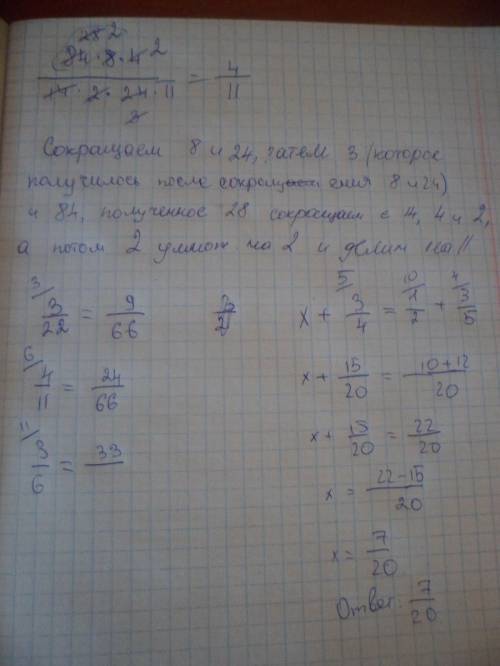 28 2
84 · 8 · 4 2
14 · 2 · 24 · 11 = 4/11
3
Сокращаем 8 и 24, затем 3 (которое
получилось после сокращ ения 8 и 24)
и 84, полученное 28 сокращаем с 14, 4 и 2,
а потом 2 умнож на 2 и делим на 11
3/ 3/22 = 9/66
6/ 4/11 = 24/66
11/ 3/6 = 33
x + 5/ 3/4 = 10/ 1/2 + 4/ 3/5
x + 15/20 = 10+12/20
x + 15/20 = 22/20
x = 22-15/20
x = 7/20
Ответ: 7/20